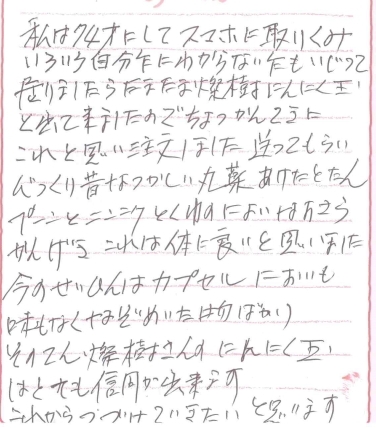 私は74才にしてスマホに取りくみ
いろいろ自分なりにわからないなもいじって
居りましたらたまたま燦樹さんにんにく玉
と出て来ましたのでちょっかん的に
これと思い注文しました 送ってもらい
びっくり昔なつかしい丸薬 あけたとたん
プーンとニンニクとくゆうのにおい なおさら
かんげき これは体に良いと思いました
今のせいひんはカプセル においも
味もなくなぞめいた物ばかり
そのてん 燦樹さんの にんにく玉
はとても信用が出来ます
これからつづけていきたいと思います